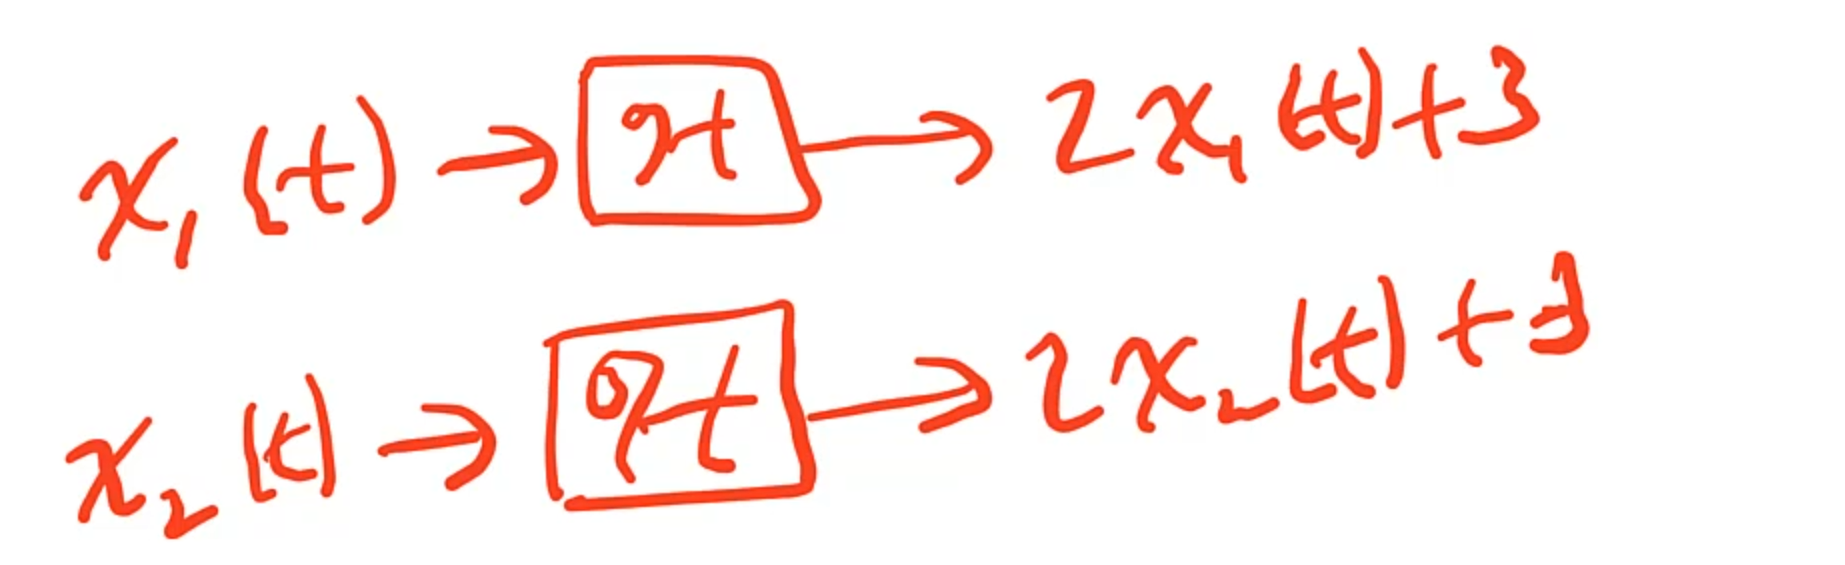 x₁(t) → ℋ → 2x₁(t)+3
x₂(t) → ℋ → 2x₂(t)+3